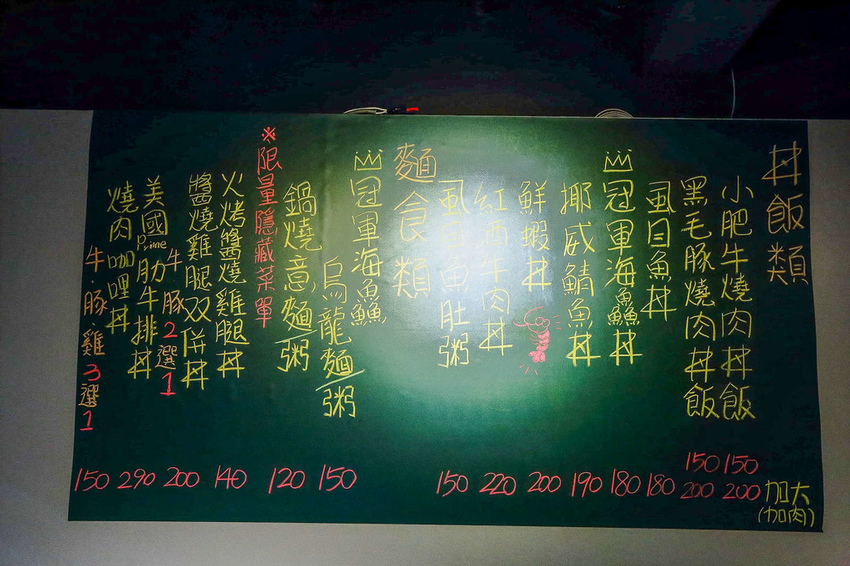 丼飯類
小肥牛燒肉丼飯 150 200
黑毛豚燒肉丼飯 150 200
加大
(加肉)
虱目魚丼 180
冠軍海鱻丼 180
挪威鯖魚丼 190
鮮蝦丼 200
紅酒牛肉丼 220
虱目魚肚粥 150
麵食類
冠軍海鱻
烏龍麵/粥 150
鍋燒意麵/粥 120
※限量隱藏菜單
火烤醬燒雞腿丼 140
醬燒雞腿双併丼 200
牛、豚2選1
美國Prime肋牛排丼 290
燒肉咖哩丼 150
牛、豚、雞3選1